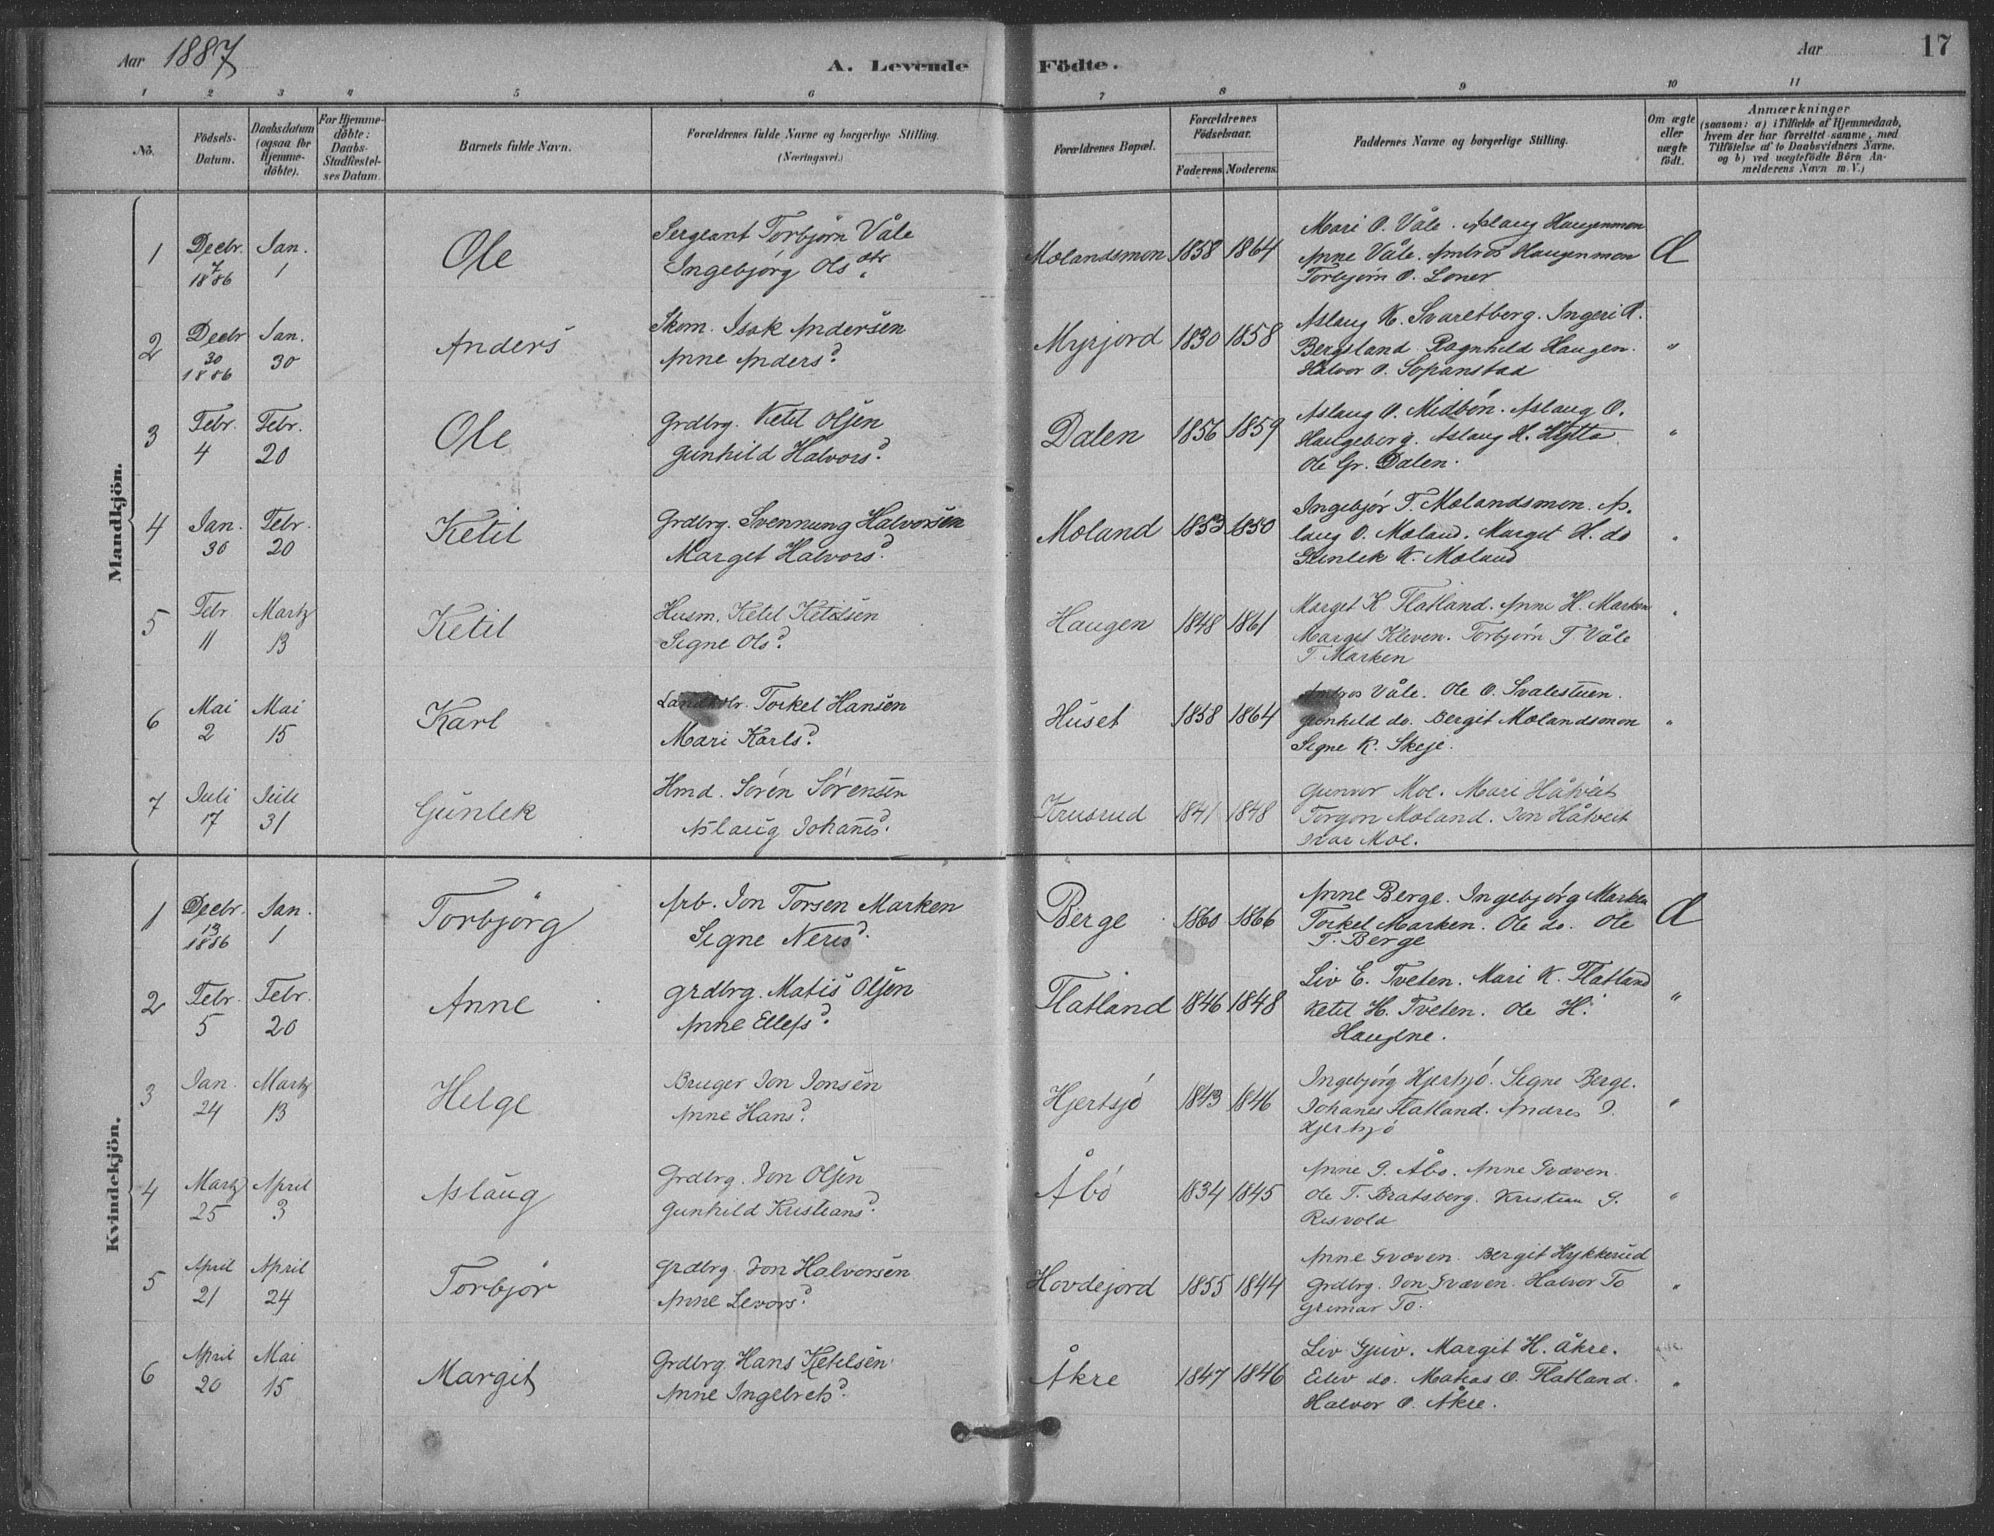 Aar 1887
A. Levende Födte.
Aar
17
1 2 3 4 5 6 7 8 9 10 11
No.
Födsels-Datum.
Daabsdatum (ogsaa for Hjemme-döbte).
For Hjemme-döbte: Daabs-Stadfæstel-ses Datum.
Barnets fulde Navn.
Forældrenes fulde Navne og borgerlige Stilling. (Næringsvei.)
Forældrenes Bopæl.
Forældrenes Födselsaar.
Faderens Moderens
Faddernes Navne og borgerlige Stilling.
Om ægte eller uægte födt.
Anmærkninger
(saasom: a) i Tilfælde af Hjemmedaab,
hvem der har forrettet samme, med
Tilföielse af to Daabsvidners Navne.
og b) ved uægtefödte Börn An-
melderens Navn m. V.)
Mandkjön.
1 Decbr. 7 1886 Jan. 1 Ole
Sergeant Torbjørn Våle
Ingebjörg Olsdtr.
Molandsmon 1858 1864
Mari O. Våle. Aslaug Haugenmon
Anne Våle. Ambros Haugenmon
Torbjørn O. Loner
Æ
2 Decbr 30 1886 Jan. 30 Anders
Skom. Isak Andersen
Anne Andersd.
Myrjord 1830 1858
Aslaug K. Svaretberg. Ingeri A.
Bergsland. Ragnhild Haugen.
Halvor O. Sopanstad
"
3 Febr. 4 Febr. 20 Ole
Grdbrg. Ketil Olsen
Gunhild Halvorsd.
Dalen 1856 1859
Aslaug O. Midbön. Aslaug O.
Haugeberg. Aslaug H. Hytta
Ole Gr. Dalen.
"
4 Jan. 30 Febr. 20 Ketil
Grdbrg. Svennung Halvorsen
Marget Halvorsd.
Moland 1853 1850
Ingebjør T. Molandsmon. As-
laug O. Moland. Marget H. do
Gunlek K. Moland
"
5 Febr. 11 Martz 13 Ketil
Husm. Ketil Ketilsen
Signe Olsd.
Haugen 1848 1861
Marget K Flatland. Anne H. Marken
Marget Kleven. Torbjørn T Våle
T. Marken
"
6 Mai 2 Mai 15 Karl
Torkel Hansen
Mari Karlsd.
Huset 1858 1864
Ambros Våle. Ole O. Svalestuen.
Gunhild do. Bergit Molandsmon
Signe K. Skeje.
"
7 Juli 17 Juli 31 Gunlek
Hmd. Sörén Sørensen
Aslaug Johansd.
Krusrud 1841 1848
Gunvor Moe. Mari Håtveit
Torgon Moland. Jon Håtveit
Ivar Moe.
Kvindekjön.
1 Decbr. 13 1886 Jan. 1 Torbjörg
Arb. Jon Torsen Marken
Signe Nerisd.
Berge 1860 1866
Anne Berge. Ingebjörg Marken
Torkel Marken. Ole do. Ole
T. Berge
Æ
2 Febr. 5 Febr. 20 Anne
Grdbrg. Matis Olsen
Anne Ellefsd.
Flatland 1846 1848
Liv E. Tveten. Mari K. Flatland
Ketil H. Tveten. Ole H.
Haugene.
"
3 Jan. 24 Martz 13 Helge
Bruger Jon Jonsen
Anne Hansd.
Hjertsjö 1843 1846
Ingebjörg Hjertsjö. Signe Berge.
Johanes Flatland. Andres J.
Hjertsjö
"
4 Martz 25 April 3 Aslaug
Grdbrg. Jon Olsen
Gunhild Kristiansd.
Åbö 1834 1845
Anne G. Åbö. Anne Gvæven.
Ole T. Bratsberg. Kristian G.
Risvold
"
5 April 21 April 24 Torbjör
Grdbrg. Jon Halvorsen
Anne Levorsd.
Hovdejord 1855 1844
Anne Gvæven. Bergit Hykkerud
Grdbrg. Jon Gvæven. Halvor To
Greimar To.
"
6 April 20 Mai 15 Margit
Grdbrg. Hans Ketelsen
Anne Ingebretsd.
Åkre 1847 1846
Liv Gjuv. Margit H. Åkre.
Eiliv do. Matias O. Flatland.
Halvor O. Åkre.
"